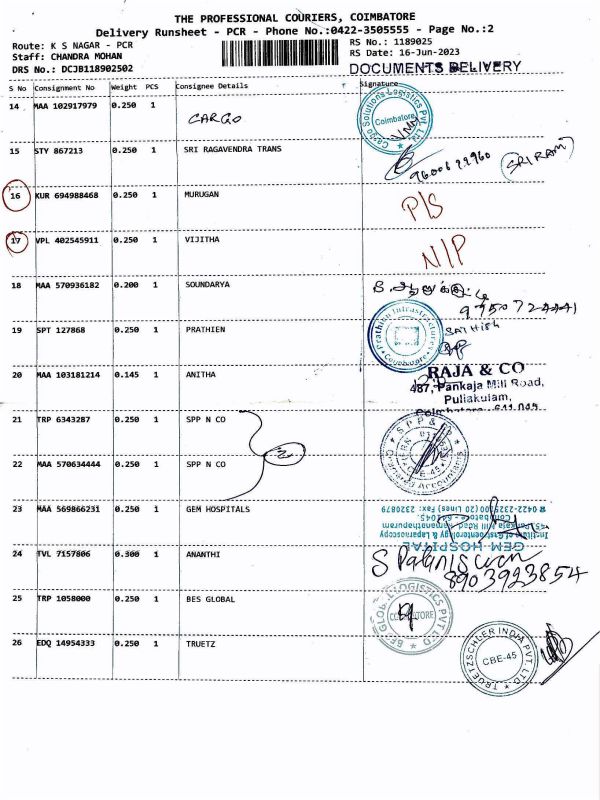 THE PROFESSIONAL COURIERS, COIMBATORE
Delivery Runsheet - PCR - Phone No.:0422-3505555 - Page No.:2
Route: K S NAGAR - PCR
RS No.: 1189025
Staff: CHANDRA MOHAN
RS Date: 16-Jun-2023
DRS No.: DCJB118902502
DOCUMENTS DELIVERY
S No Consignment No Weight PCS Consignee Details Signature
14 MAA 102917979 0.250 1 CARGO
Solutions Logistics Pvt. Ltd.
Coimbatore
15 STY 867213 0.250 1 SRI RAGAVENDRA TRANS
9600622960 SRIRAM
16 KUR 694988468 0.250 1 MURUGAN P/S
17 VPL 402545911 0.250 1 VIJITHA N/P
18 MAA 570936182 0.200 1 SOUNDARYA
19 SPT 127868 0.250 1 PRATHIEN
Prathien Infrastructures
Coimbatore
SATHISH
20 MAA 103181214 0.145 1 ANITHA
RAJA & CO
487, Pankaja Mill Road,
Puliakulam,
Coimbatore - 641 045
21 TRP 6343287 0.250 1 SPP N CO
22 MAA 570634444 0.250 1 SPP N CO
SPP & CO
CBE-45
Chartered Accountants
23 MAA 569866231 0.250 1 GEM HOSPITALS
GEM HOSPITAL
Institute of Gastroenterology & Laparoscopy
45, Pankaja Mill Road, Ramanathapuram
Coimbatore - 641045.
0422-2325100(20 Lines) Fax: 2320879
24 TVL 7157806 0.300 1 ANANTHI
8903923854
25 TRP 1058000 0.250 1 BES GLOBAL
GLOBAL LOGISTICS PVT LTD
COIMBATORE
26 EDQ 14954333 0.250 1 TRUETZ
TRUETZSCHLER INDIA PVT. LTD
CBE-45